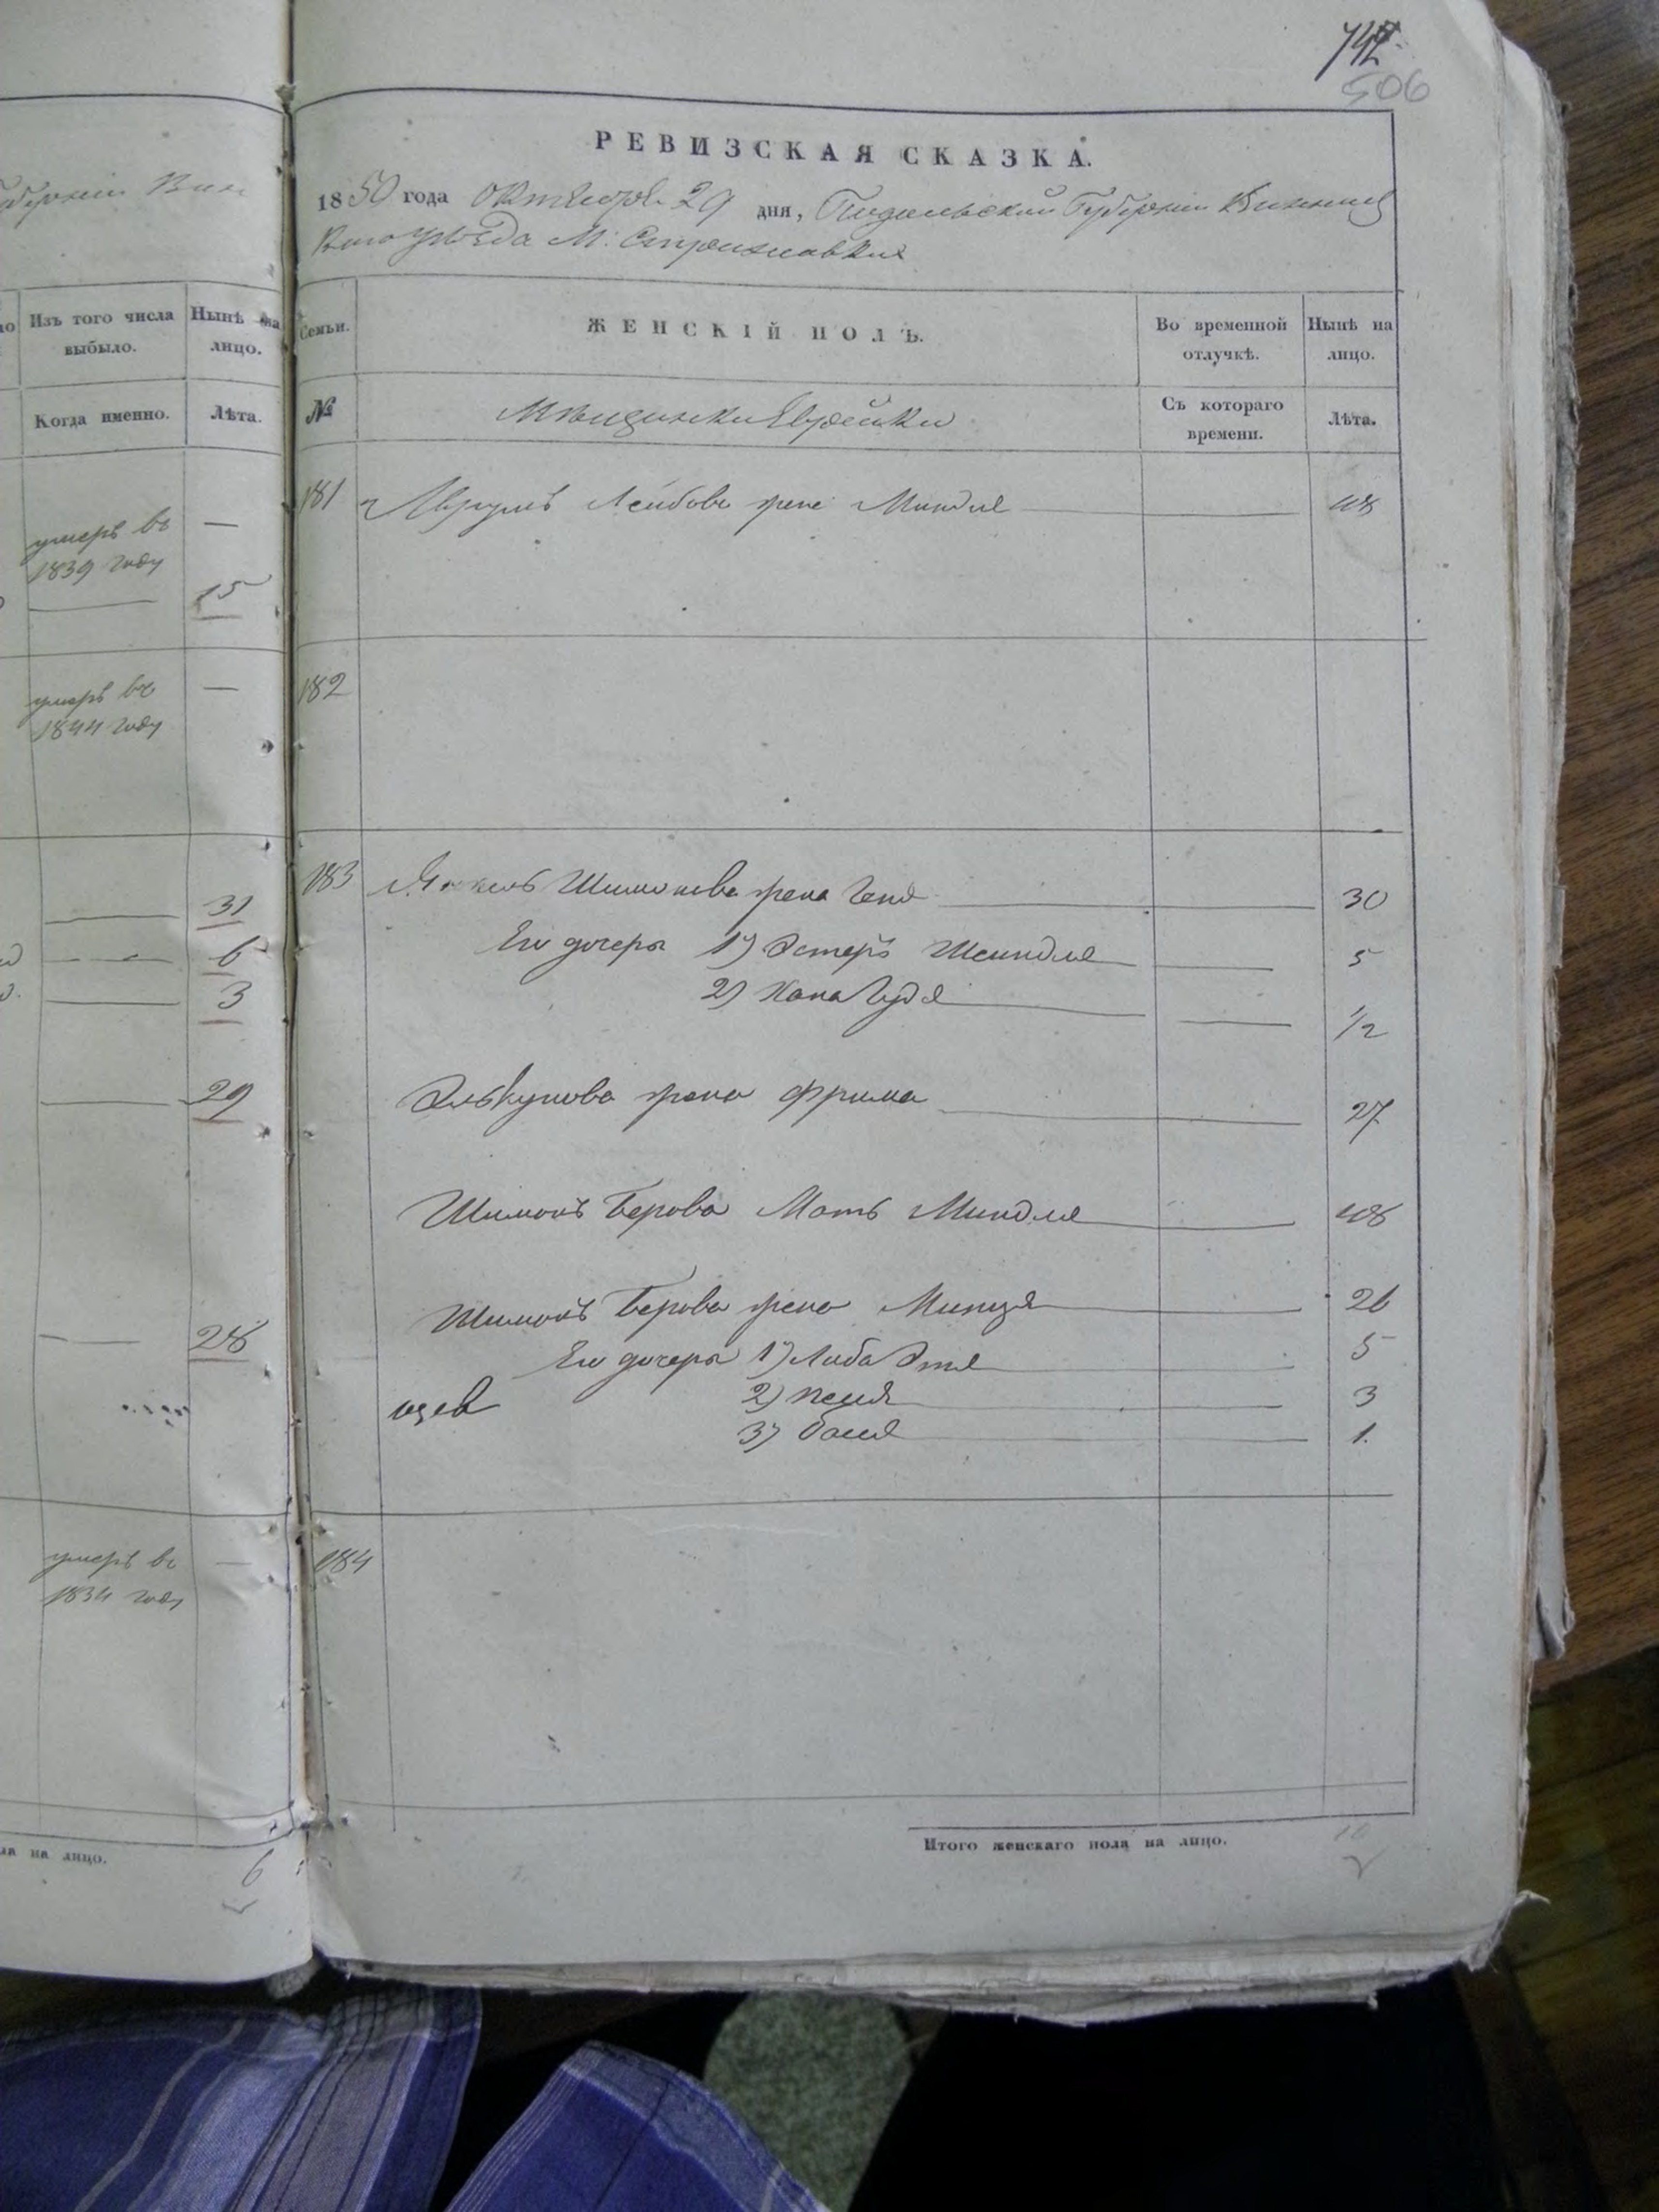 742
506
губерніи Вин
Изъ того числа выбыло.
Нынѣ на лицо.
Когда именно.
Лѣта.
умеръ въ —
1839 году
15
умеръ въ —
1844 году
31
6
3
29
28
умеръ въ —
1834 году
ла на лицо.
6
РЕВИЗСКАЯ СКАЗКА.
1850 года Октября 29 дня, Подольской Губерніи Винниц
каго Уѣзда М. Стрижавки
Семьи.
ЖЕНСКІЙ ПОЛЪ.
Во временной отлучкѣ.
Нынѣ на лицо.
№
Мѣщанки Еврейки
Съ котораго времени.
Лѣта.
181 Лейбова жена Миндля 48
182
183 Шимонова жена Геня 30
Его дочеры 1) Эстеръ Шейндля 5
2) Хана Гудя 1/2
жена Фрима 27
Шимонъ Берова Мать Миндля 48
Шимонъ Берова жена Минця 26
Его дочеры 1) Либа Этя 5
2) Песя 3
3) Бася 1.
184
Итого женскаго пола на лицо.
10